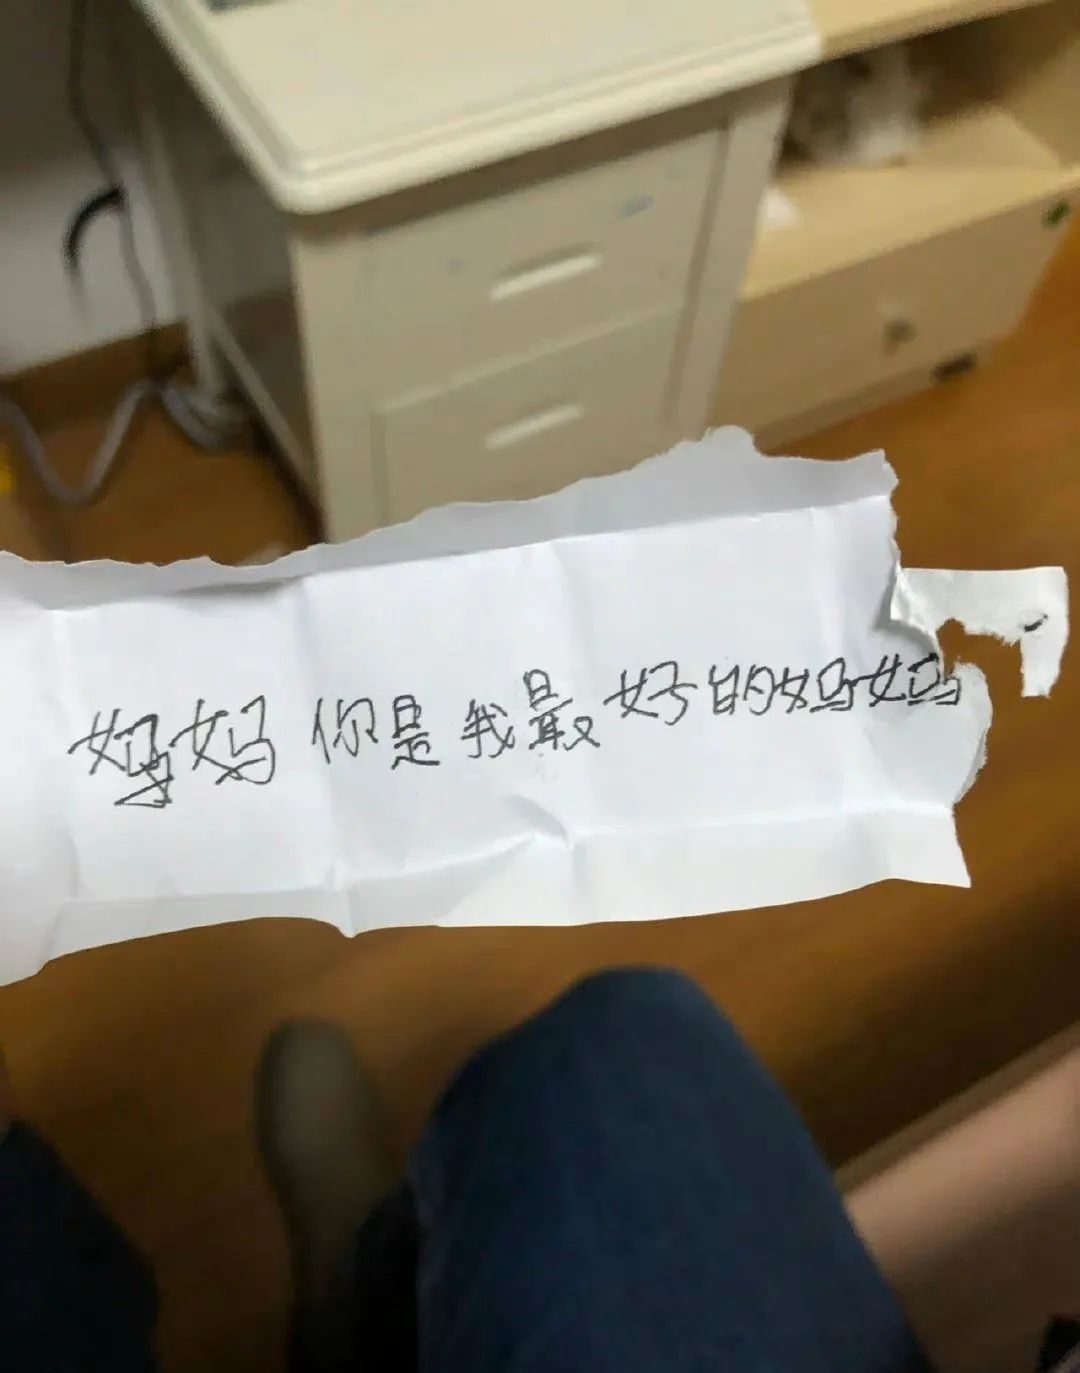 妈妈你是我最好的妈妈